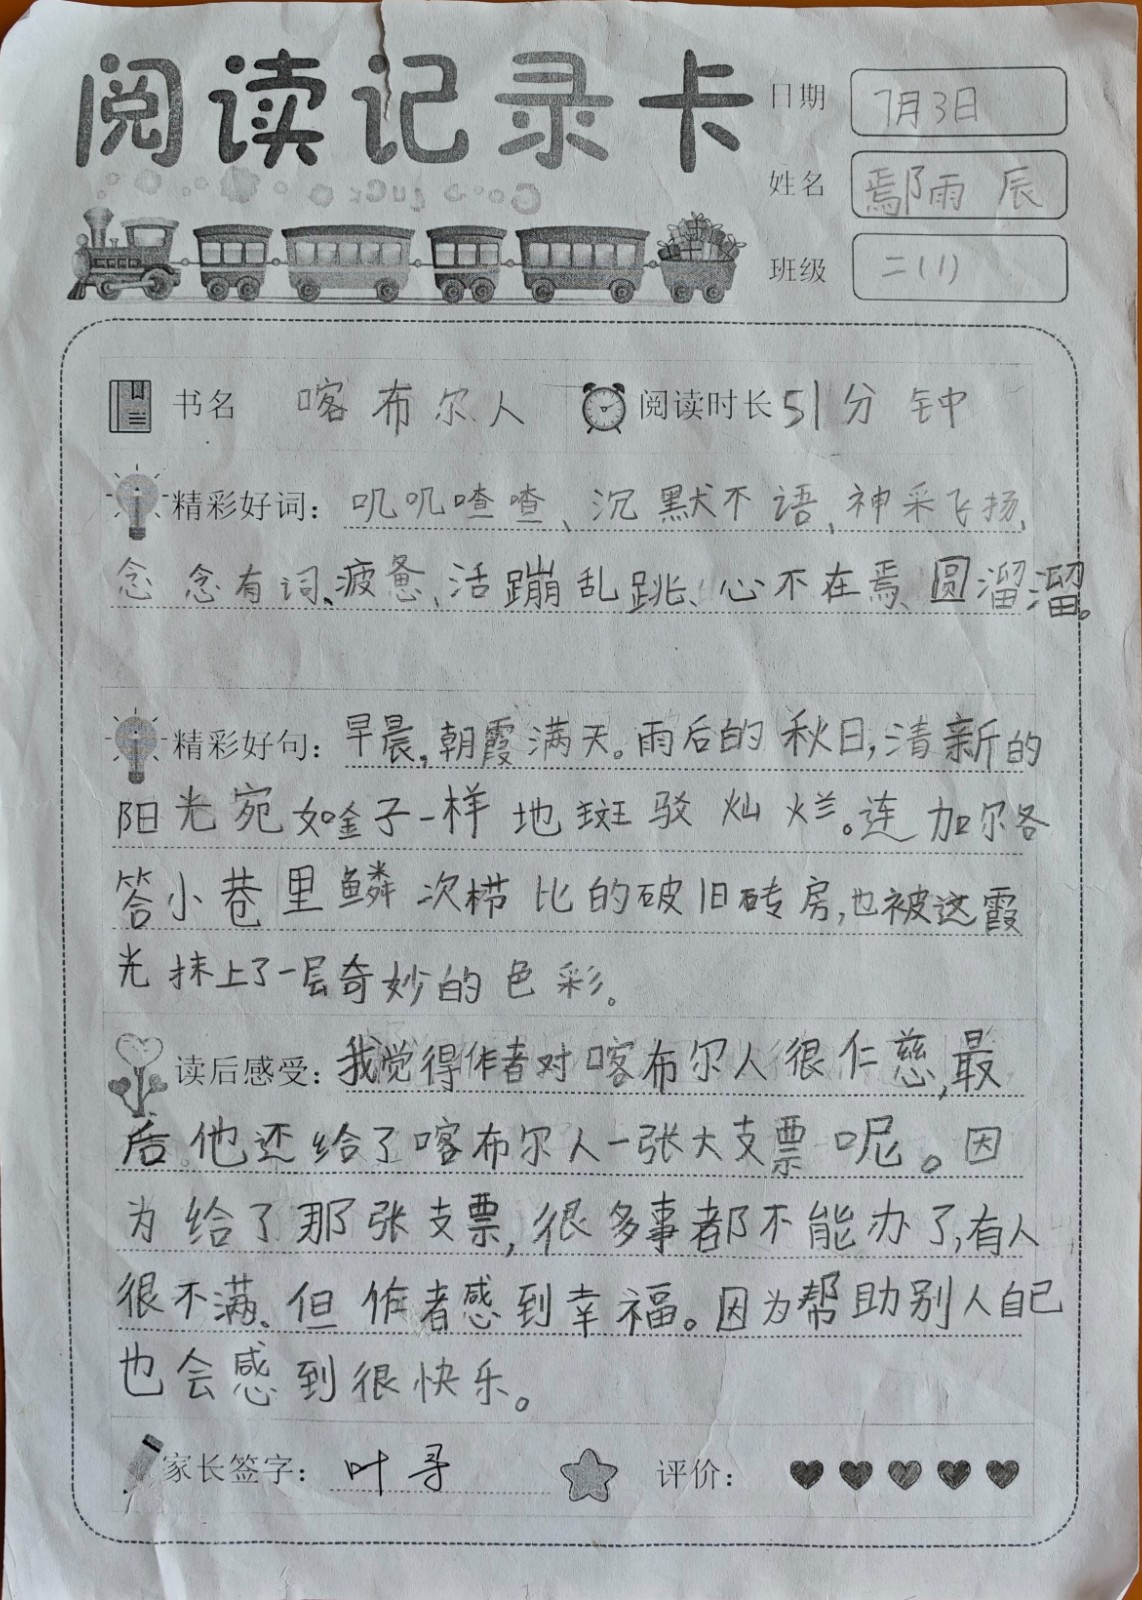 阅读记录卡
日期 7月3日
Good Luck
姓名 鄢雨辰
班级 二(1)
书名 喀布尔人 阅读时长 51分钟
精彩好词：叽叽喳喳、沉默不语、神采飞扬、
念念有词、疲惫、活蹦乱跳、心不在焉、圆溜溜。
精彩好句：早晨，朝霞满天。雨后的秋日，清新的
阳光宛如金子一样地斑驳灿烂。连加尔各
答小巷里鳞次栉比的破旧砖房，也被这霞
光抹上了一层奇妙的色彩。
读后感受：我觉得作者对喀布尔人很仁慈，最
后他还给了喀布尔人一张大支票呢。因
为给了那张支票，很多事都不能办了，有人
很不满。但作者感到幸福。因为帮助别人自己
也会感到很快乐。
家长签字：叶寻 评价：